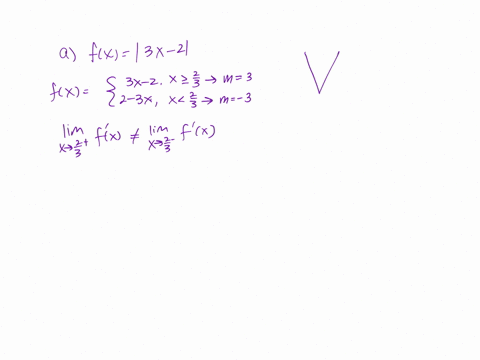 a) f(x) = |3x-2|
f(x) = { 3x-2. x ≥ 2/3 → m = 3
2-3x, x < 2/3 → m = -3
lim x→2/3+ f'(x) ≠ lim x→2/3- f'(x)